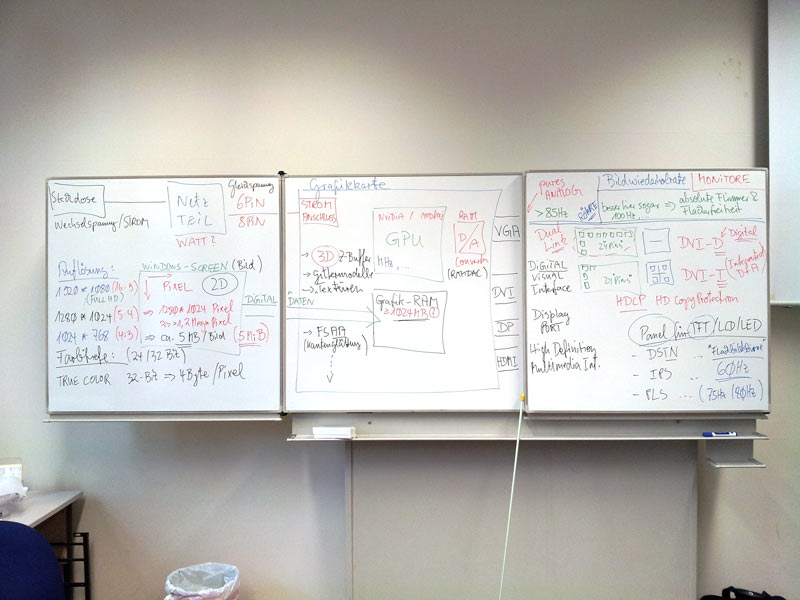 Steckdose
Netz
TEIL
Gleichspannung
6PiN
8PiN
Wechselspannung/STROM
WATT?
Auflösung:
WINDOWS-SCREEN (Bild)
1920 * 1080 (16:9)
(FULL HD)
1280 * 1024 (5:4)
1024 * 768 (4:3)
PIXEL
2D
⇒ 1280*1024 Pixel
⇒ ca. 5 MB/Bild
(5 MiB)
DiGiTAL
Farbtiefe: (24/32 Bit)
TRUE COLOR 32-Bit ⇒ 4 Byte/Pixel
Grafikkarte
STROM
ANSCHLUSS
NViDiA / AMD
GPU
MHz, ...
RAM
D/A
Converter
(RAMDAC)
→ 3D Z-Buffer
→ Gittermodelle
→ Texturen
DATEN
Grafik-RAM
1024MB
→ FSAA
(Kantenglättung)
VGA
DVI
DP
HDMI
pures
ANALOG!
Bildwiederholrate
MONiTORE
> 85Hz
RÖHRE
besser hier sogar ⇒
100Hz...
absolute Flimmer &
Dual
Link
DiGiTAL
ViSUAL
Interface
DVI-D
Digital
DVI-I
HDCP HD Copy Protection
Display
PORT
High Definition
Multimedia Int.
Panel für TFT/LCD/LED
- DSTN ...
- IPS ... 60Hz
- PLS ... (75Hz/80Hz)